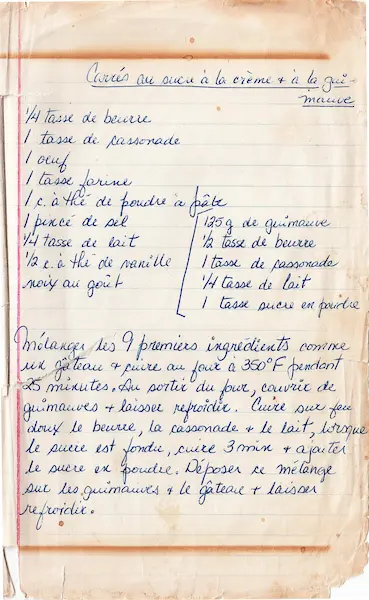 Carrés au sucre à la crème + à la gui-
mauve
1/4 tasse de beurre
1 tasse de cassonade
1 oeuf
1 tasse farine
1 c. à thé de poudre à pâte
1 pincé de sel
1/4 tasse de lait
1/2 c. à thé de vanille
noix au goût
125 g de guimauve
1/2 tasse de beurre
1 tasse de cassonade
1/4 tasse de lait
1 tasse sucre en poudre
Mélanger les 9 premiers ingrédients comme
un gâteau + cuire au four à 350°F pendant
25 minutes. Au sortir du four, couvrir de
guimauves + laisser refroidir. Cuire sur feu
doux le beurre, la cassonade + le lait, lorsque
le sucre est fondu, cuire 3 min + ajouter
le sucre en poudre. Déposer ce mélange
sur les guimauves + le gâteau + laisser
refroidir.